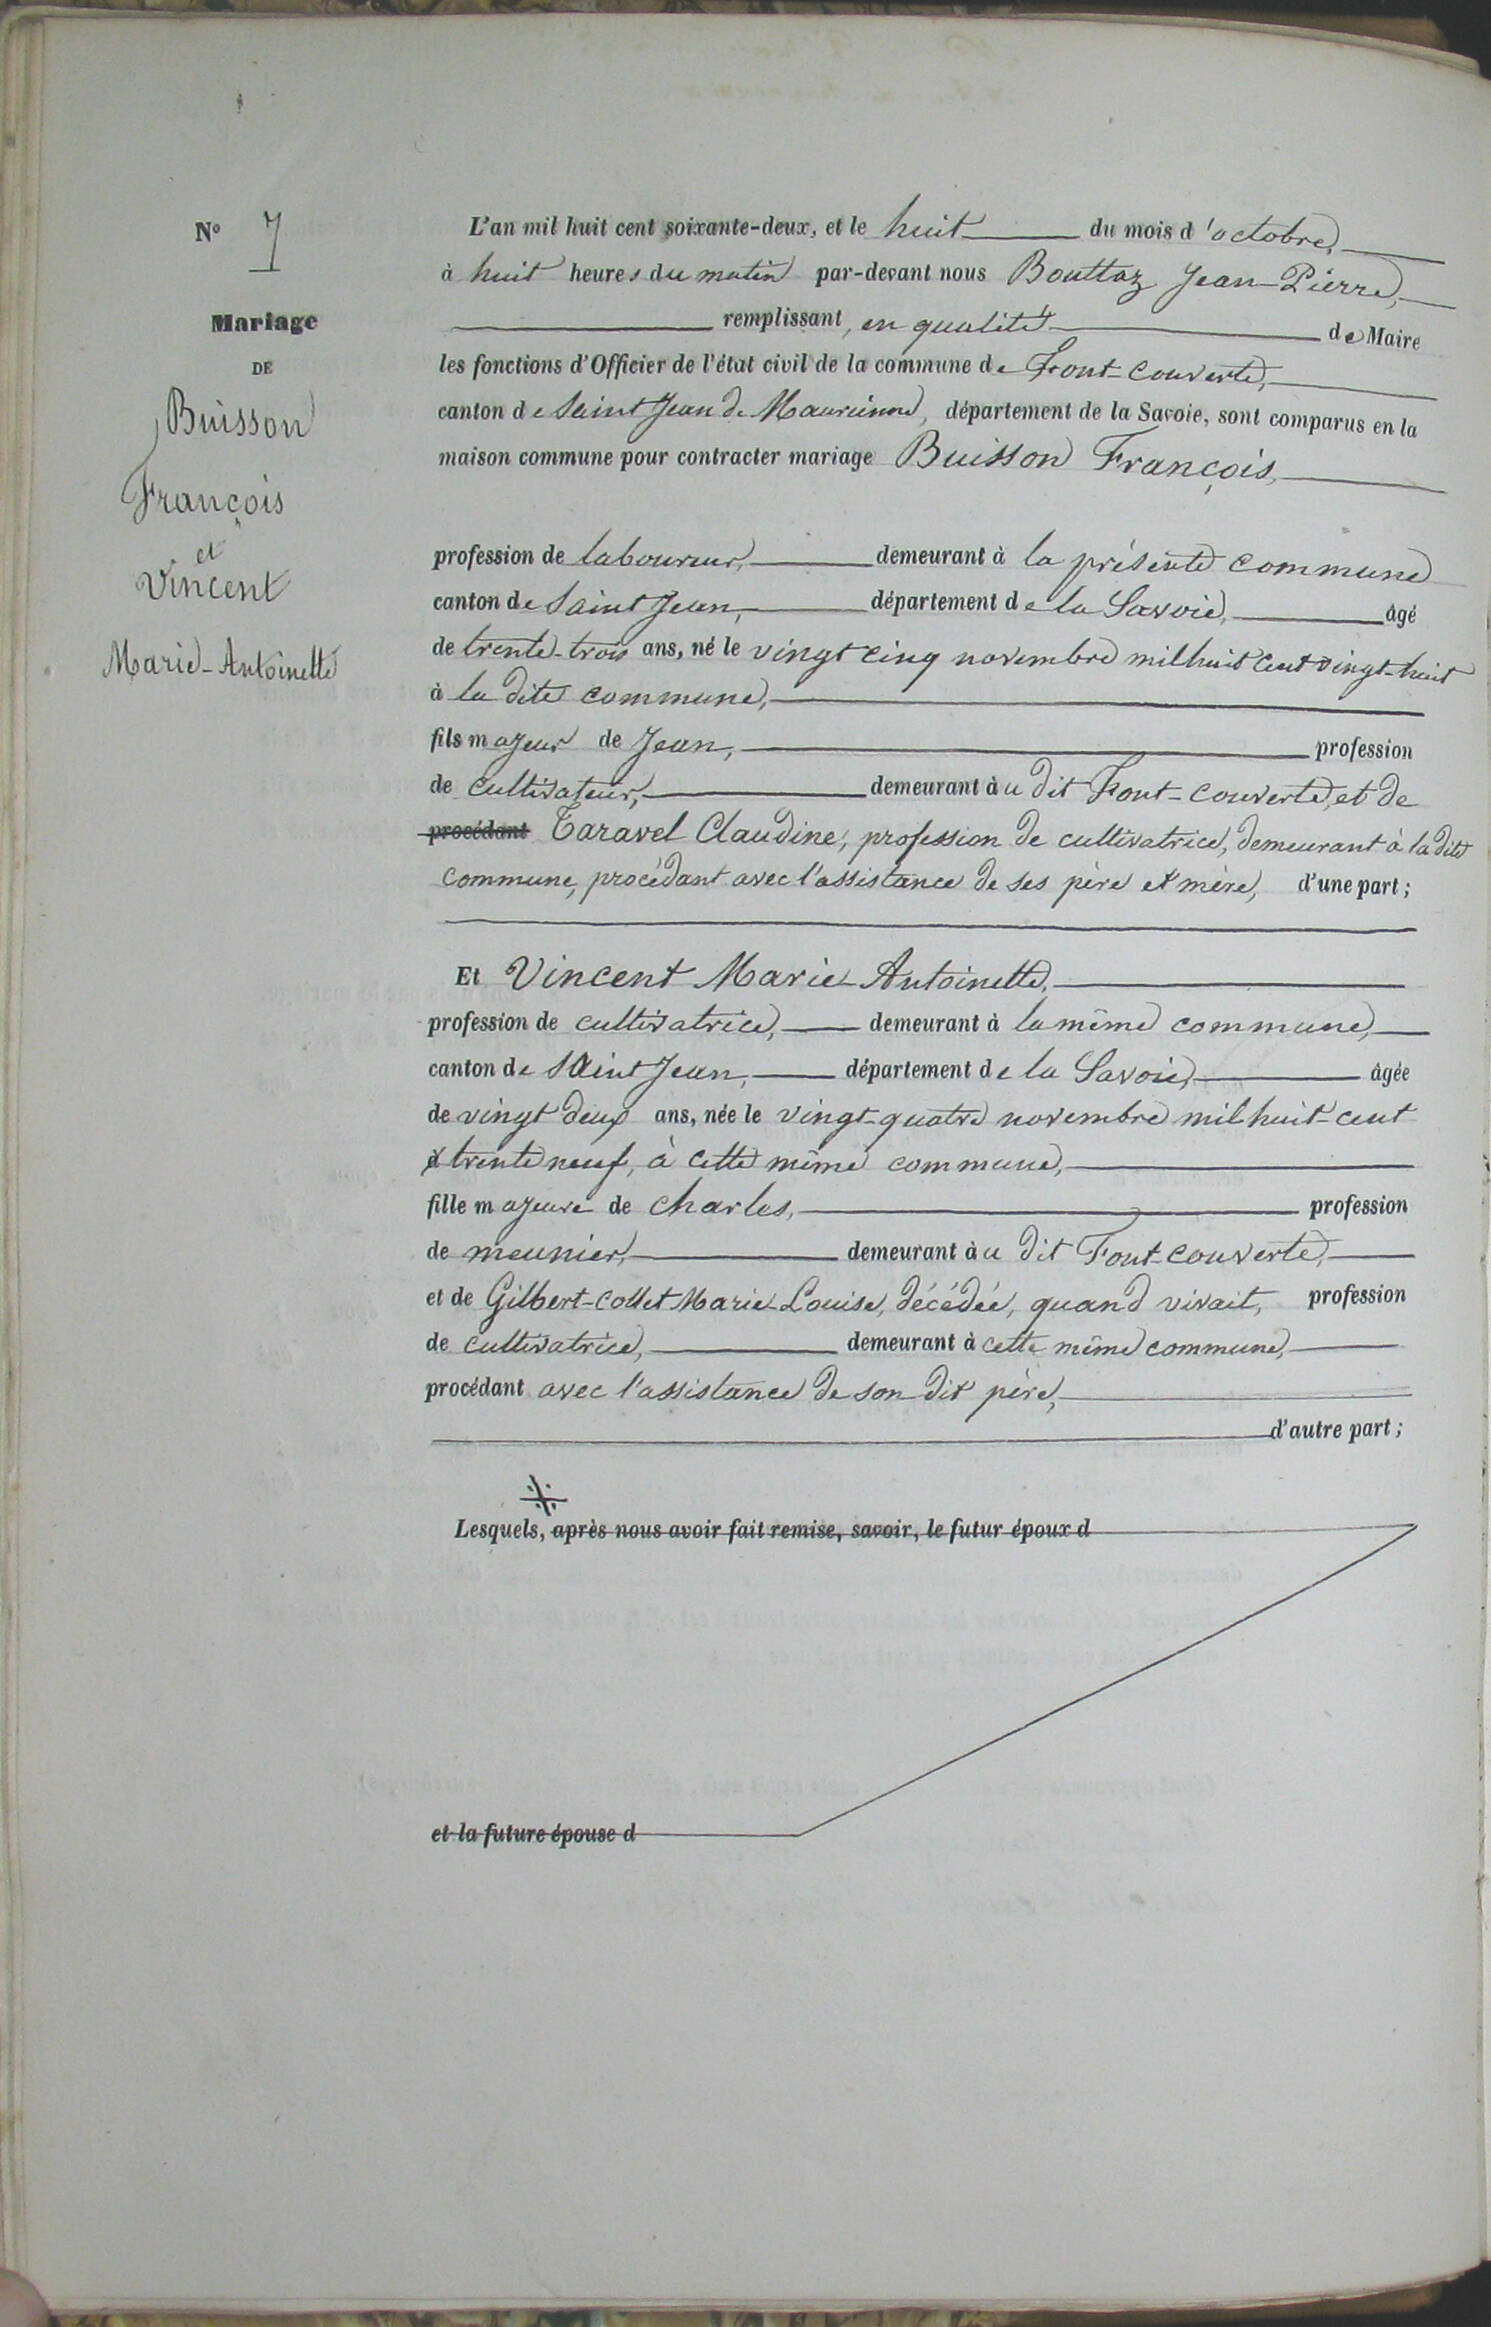 N° 7
Mariage
DE
Buisson
François
et
Vincent
Marie-Antoinette
L'an mil huit cent soixante-deux, et le huit du mois d'octobre,
à huit heures du matin par-devant nous Bouttaz Jean-Pierre,
remplissant, en qualité de Maire
les fonctions d'Officier de l'état civil de la commune de Font-couverte,
canton de Saint Jean de Maurienne, département de la Savoie, sont comparus en la
maison commune pour contracter mariage Buisson François,
profession de laboureur, demeurant à la présente commune
canton de Saint Jean, département de la Savoie, âgé
de trente-trois ans, né le vingt cinq novembre mil huit cent vingt-huit
à la dite commune,
fils majeur de Jean, profession
de cultivateur, demeurant àu dit Font-couverte, et de
procédant Taravel Claudine, profession de cultivatrice, demeurant à la dite
commune, procédant avec l'assistance de ses père et mère, d'une part;
Et Vincent Marie-Antoinette,
profession de cultivatrice, demeurant à la même commune,
canton de Saint Jean, département de la Savoie, âgée
de vingt deux ans, née le vingt-quatre novembre mil huit-cent
trente neuf, à cette même commune,
fille majeure de Charles, profession
de meunier, demeurant àu dit Font-couverte,
et de Gilbert-Collet Marie-Louise, décédée, quand vivait, profession
de cultivatrice, demeurant à cette même commune,
procédant avec l'assistance de son dit père,
d'autre part;
Lesquels, après nous avoir fait remise, savoir, le futur époux d
et la future épouse d